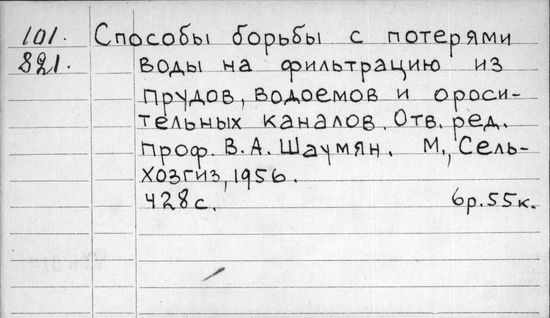 101. Способы борьбы с потерями
821. воды на фильтрацию из
прудов, водоемов и ороси-
тельных каналов. Отв. ред.
проф. В.А. Шаумян. М., Сель-
хозгиз, 1956.
428 с. 6р. 55к.